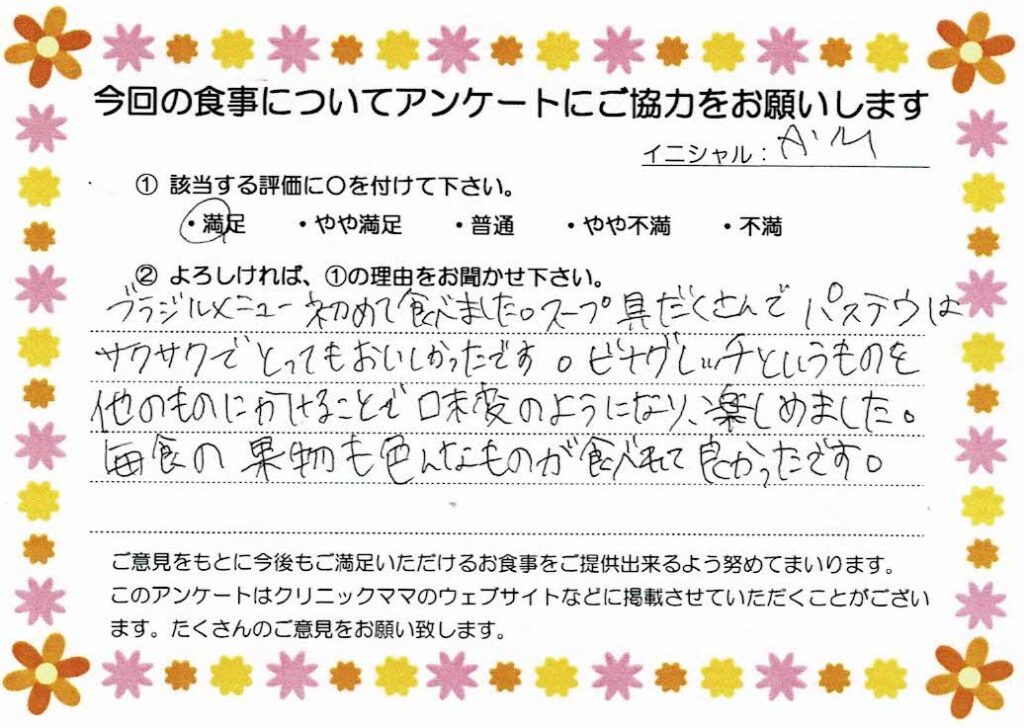 今回の食事についてアンケートにご協力をお願いします
イニシャル：A・M
① 該当する評価に〇を付けて下さい。
・満足 ・やや満足 ・普通 ・やや不満 ・不満
② よろしければ、①の理由をお聞かせ下さい。
ブラジルメニュー初めて食べました。スープ具だくさんで パステウは
サクサクでとってもおいしかったです。ビナグレッチというものを
他のものにかけることで味変のようになり、楽しめました。
毎食の果物も色んなものが食べれて良かったです。
ご意見をもとに今後もご満足いただけるお食事をご提供出来るよう努めてまいります。
このアンケートはクリニックママのウェブサイトなどに掲載させていただくことがござい
ます。たくさんのご意見をお願い致します。